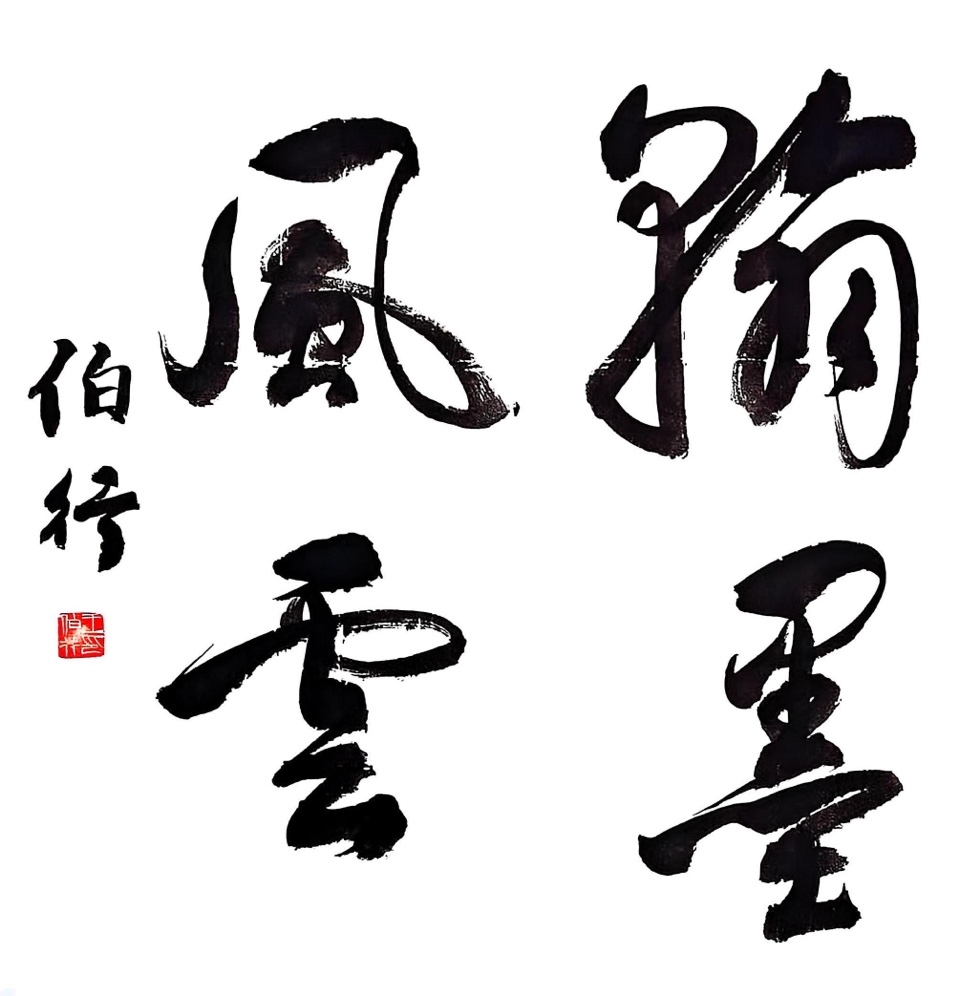 翰墨
風雲
伯行